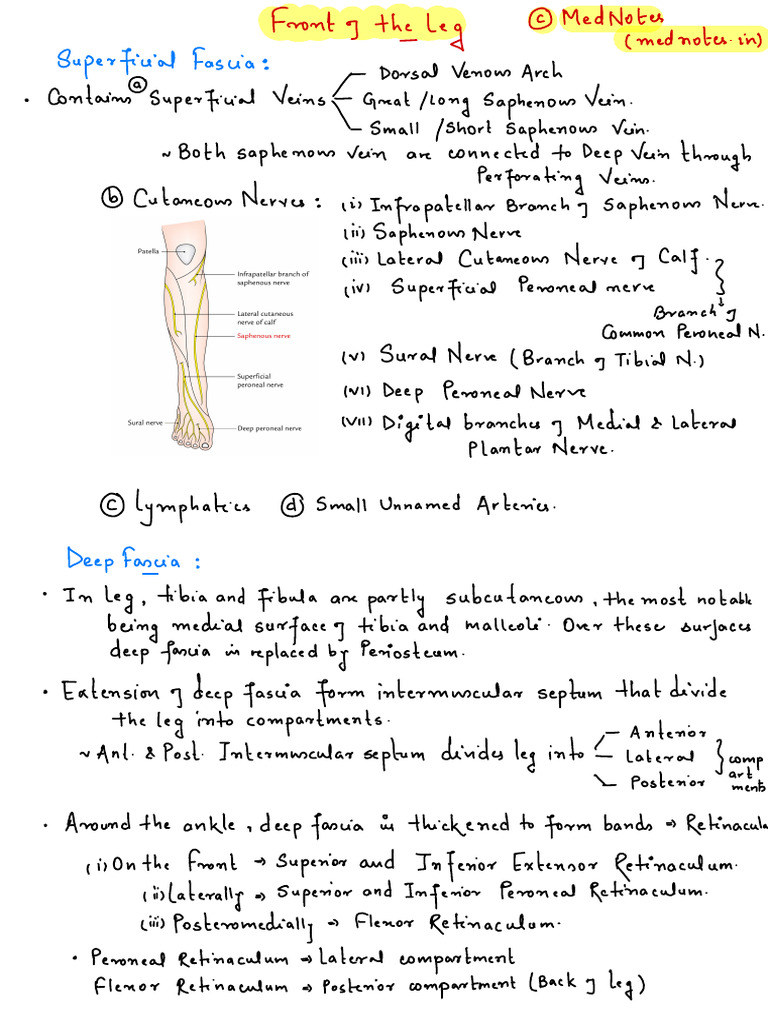 Front of the Leg
© MedNotes
(mednotes.in)
Superficial Fascia:
• Contains ⓐ Superficial Veins
Dorsal Venous Arch
Great/Long Saphenous Vein.
Small/Short Saphenous Vein.
~ Both saphenous vein are connected to Deep Vein through
Perforating Veins.
ⓑ Cutaneous Nerves:
(i) Infrapatellar Branch of Saphenous Nerve.
(ii) Saphenous Nerve
(iii) Lateral Cutaneous Nerve of Calf.
(iv) Superficial Peroneal nerve
Branch of
Common Peroneal N.
(v) Sural Nerve (Branch of Tibial N.)
(vi) Deep Peroneal Nerve
(vii) Digital branches of Medial & Lateral
Plantar Nerve.
Patella
Infrapatellar branch of
saphenous nerve
Lateral cutaneous
nerve of calf
Saphenous nerve
Superficial
peroneal nerve
Sural nerve
Deep peroneal nerve
ⓒ Lymphatics ⓓ Small Unnamed Arteries.
Deep Fascia:
• In Leg, tibia and fibula are partly subcutaneous, the most notable
being medial surface of tibia and malleoli. Over these surfaces
deep fascia is replaced by Periosteum.
• Extension of deep fascia form intermuscular septum that divide
the leg into compartments.
~ Ant. & Post. Intermuscular septum divides leg into
Anterior
Lateral
Posterior
comp
art
ments
• Around the ankle, deep fascia is thickened to form bands → Retinacula
(i) On the Front → Superior and Inferior Extensor Retinaculum.
(ii) Laterally → Superior and Inferior Peroneal Retinaculum.
(iii) Posteromedially → Flexor Retinaculum.
• Peroneal Retinaculum → Lateral compartment
Flexor Retinaculum → Posterior compartment (Back of leg)